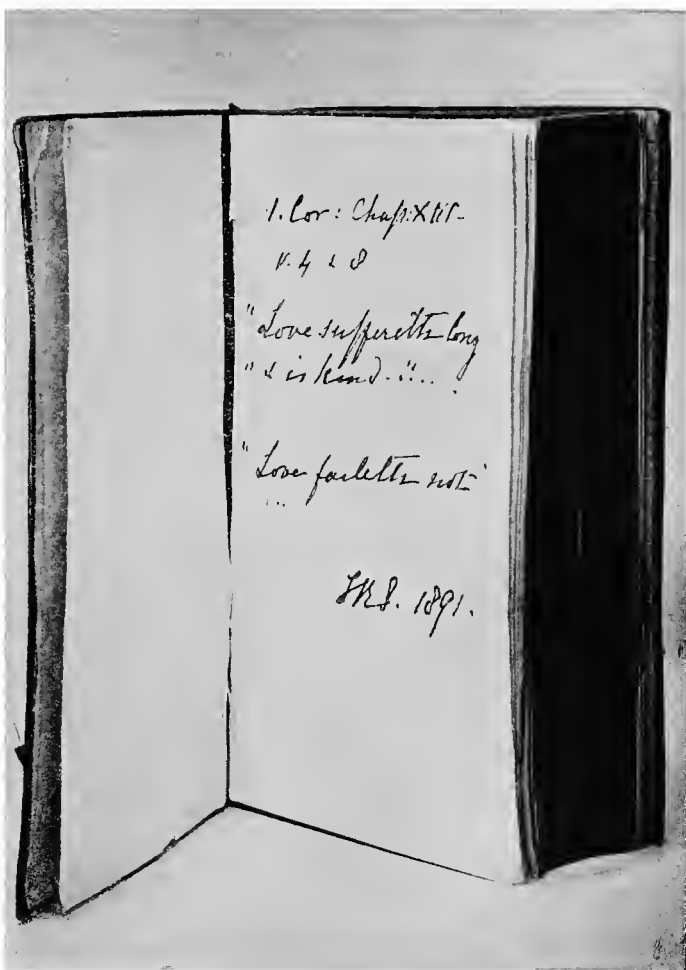 1. Cor: Chap: XIII-
v. 4 & 8
"Love suffereth long
"& is kind."...
"Love faileth not"
...
1891.